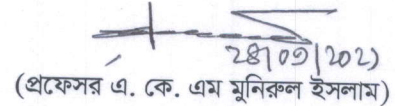 28/09/202)
(প্রফেসর এ. কে. এম মুনিরুল ইসলাম)